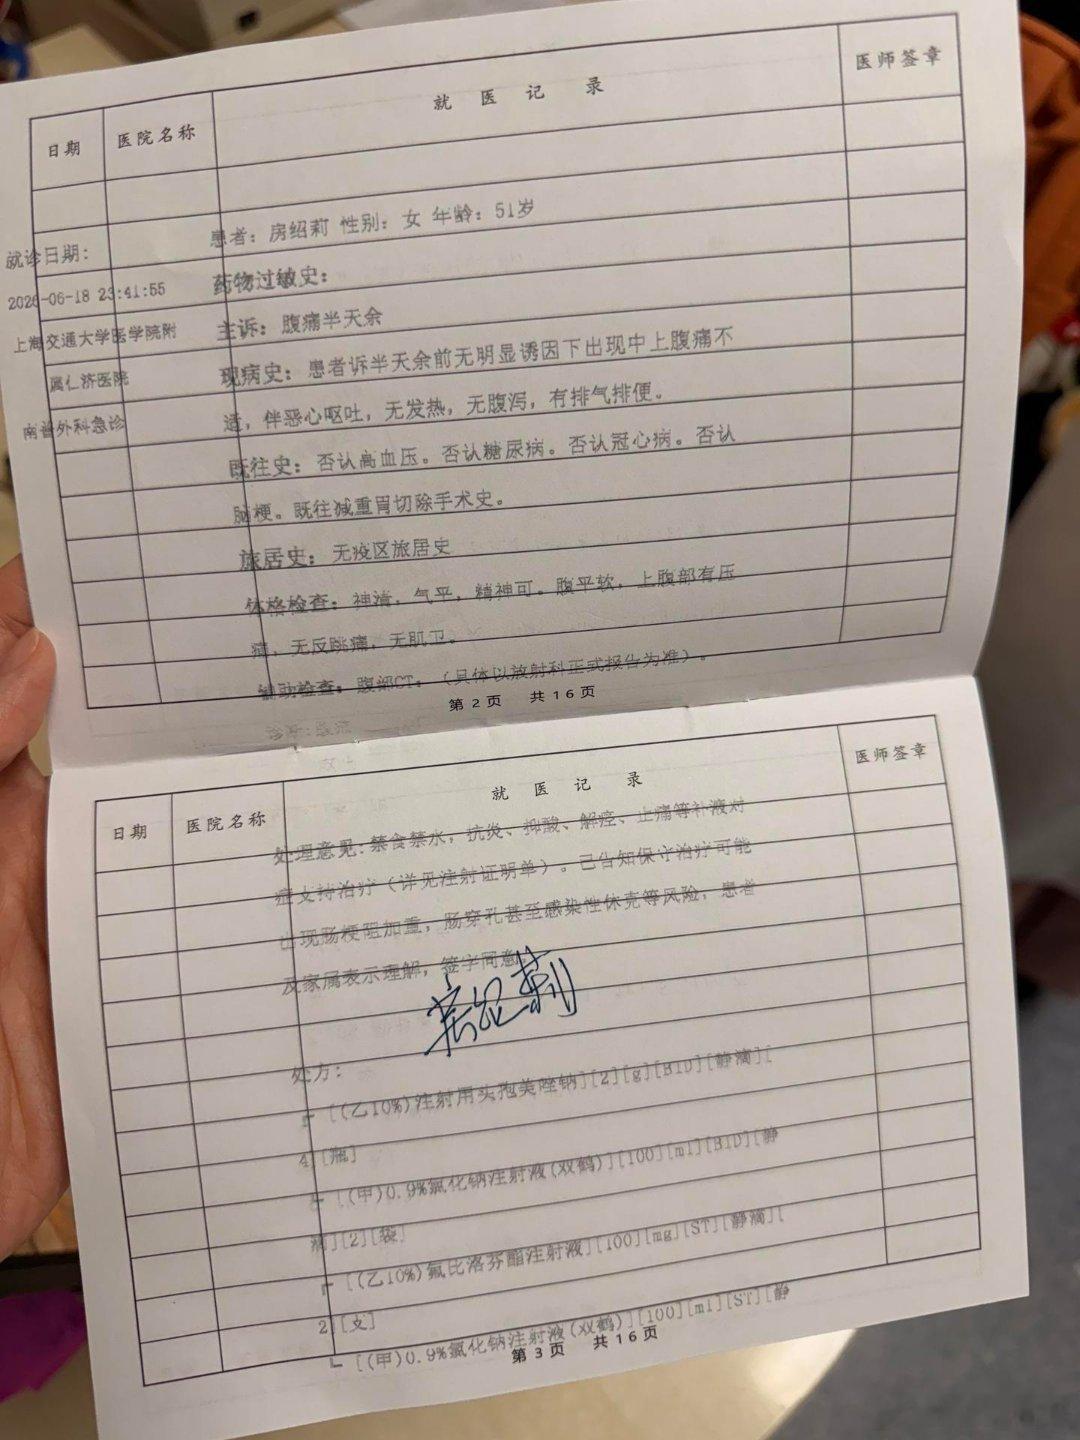 日期 医院名称 就医记录 医师签章
就诊日期:
2026-06-18 23:41:55
上海交通大学医学院附
属仁济医院
南普外科急诊
患者: 房绍莉 性别: 女 年龄: 51岁
药物过敏史:
主诉: 腹痛半天余
现病史: 患者诉半天余前无明显诱因下出现中上腹痛不
适, 伴恶心呕吐, 无发热, 无腹泻, 有排气排便。
既往史: 否认高血压。否认糖尿病。否认冠心病。否认
脑梗。既往减重胃切除手术史。
旅居史: 无疫区旅居史
体格检查: 神清, 气平, 精神可。腹平软, 上腹部有压
痛, 无反跳痛, 无肌卫。
辅助检查: 腹部CT: (具体以放射科正式报告为准)。
第2页 共16页
诊断:腹痛
日期 医院名称 就医记录 医师签章
处理意见: 禁食禁水, 抗炎、抑酸、解痉、止痛等补液对
症支持治疗 (详见注射证明单)。已告知保守治疗可能
出现肠梗阻加重, 肠穿孔甚至感染性休克等风险, 患者
及家属表示理解, 签字同意。
房绍莉
处方:
┌ [(乙10%)注射用头孢美唑钠][2][g][BID][静滴][
4][瓶]
└ [(甲)0.9%氯化钠注射液(双鹤)][100][ml][BID][静
滴][2][袋]
┌ [(乙10%)氟比洛芬酯注射液][100][mg][ST][静滴][
2][支]
└ [(甲)0.9%氯化钠注射液(双鹤)][100][ml][ST][静
第3页 共16页